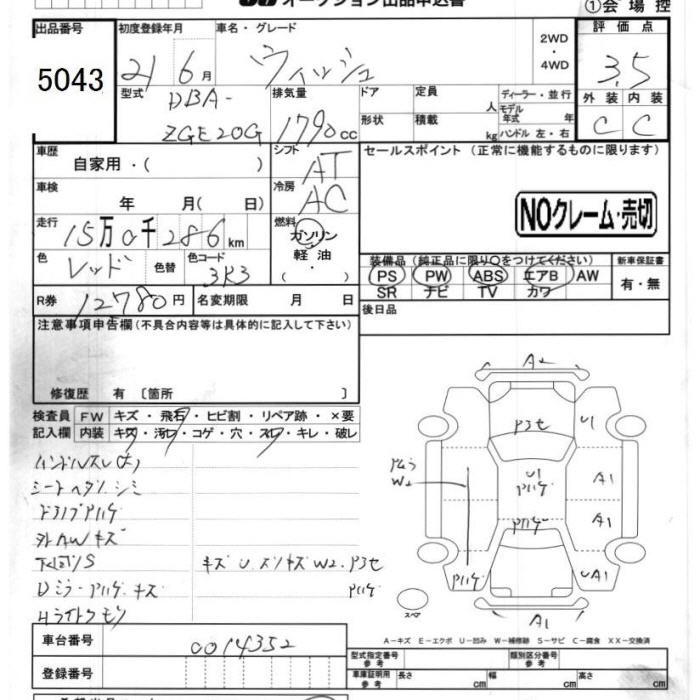 オークション出品申込書
①会場控
出品番号
5043
初度登録年月
21 6月
車名・グレード
ウィッシュ
2WD
・
4WD
評価点
3.5
型式
DBA-
ZGE20G
排気量
1790cc
ドア
定員
人
形状
積載
kg
ディーラー・並行
モデル
年式 年
ハンドル 左・右
外装 内装
C C
車歴
自家用・( )
シフト
AT
セールスポイント (正常に機能するものに限ります)
NOクレーム・売切
車検
年 月(日)
冷房
AC
走行
15万0千286km
燃料
ガソリン
軽油
( ・ )
色
レッド
色替
色コード
3R3
装備品 (純正品に限り○をつけてください)
PS PW ABS エアB AW
SR ナビ TV カワ
新車保証書
有・無
R券
12780円
名変期限 月 日
後日品
注意事項申告欄(不具合内容等は具体的に記入して下さい)
修復歴 有 〔箇所 〕
検査員 FW キズ・飛石・ヒビ割・リペア跡・×要
記入欄 内装 キズ・汚レ・コゲ・穴・スレ・キレ・破レ
ハンドルスレ
シートヘタリ シミ
外AWキズ
下回りS
キズ U スリキズ W2・Pヨセ
Dミラー Pハゲ キズ
Pハゲ
Hライトクモリ
A2
Pヨセ
U1
W2
U1
Pハゲ
A1
Pハゲ
A1
Pハゲ
UA1
スペア
A1
A-キズ E-エクボ U-凹み W-補修跡 S-サビ C-腐食 XX-交換済
車台番号
0014352
登録番号
型式指定番号
参考
類別区分番号
参考
車庫証明用
参考
長さ cm 幅 cm 高さ cm